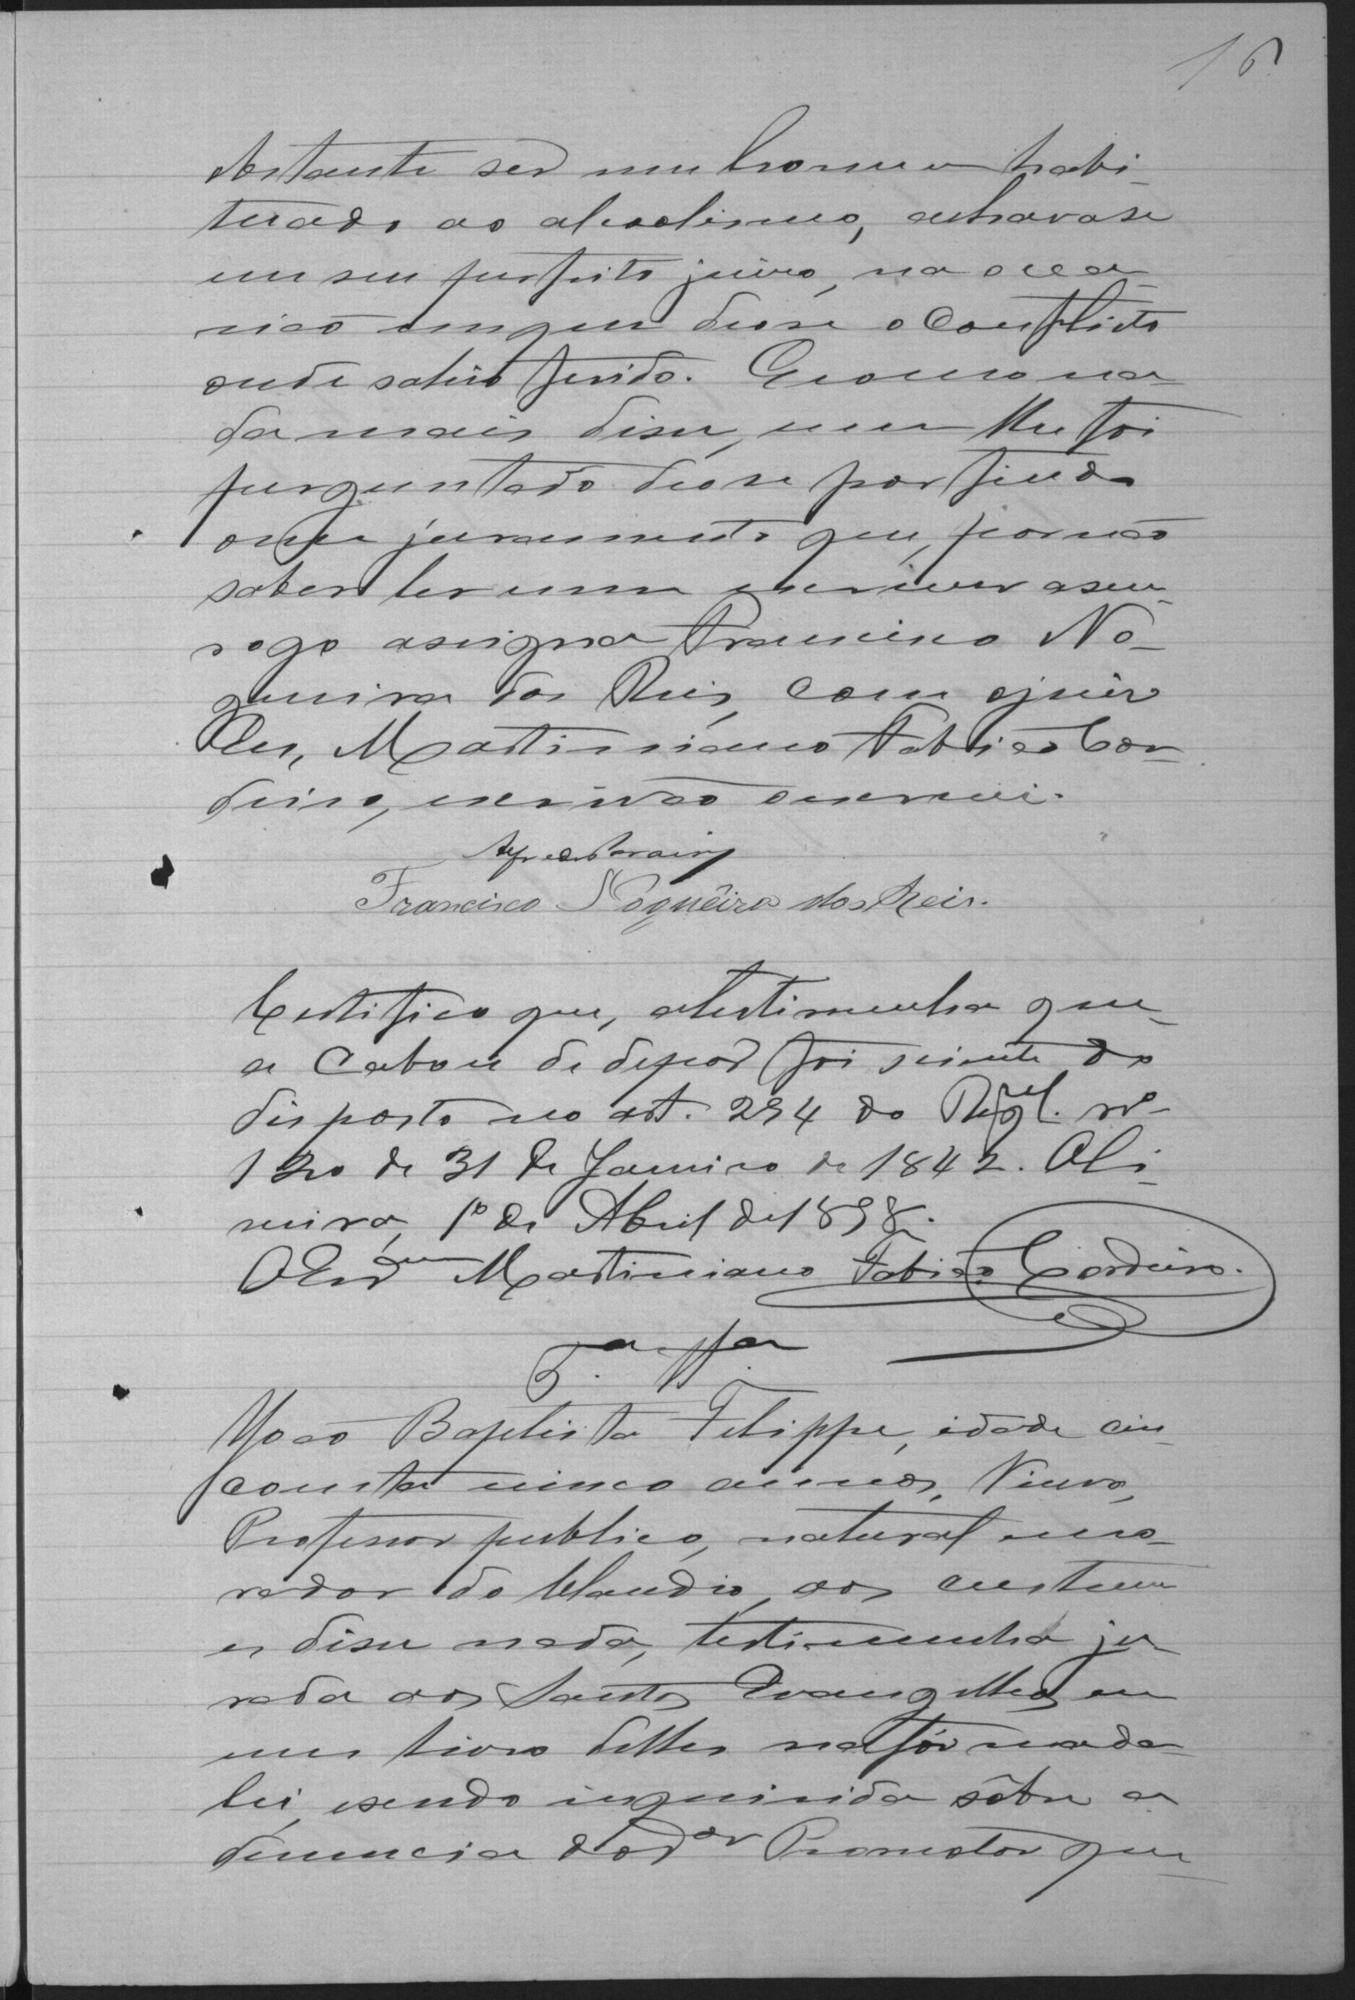 16
obstante ser um homem habi-
tuado ao alcoolismo, achava se
em seu perfeito juizo, na occa-
sião em que deo se o Conflicto
onde sahio ferido. E como na-
da mais disse, nem lhe foi
perguntado deo se por findo
o seu juramento que, por não
saber ler nem escrever a seu
rogo assigna Francisco No-
gueira dos Reis, com o juiz
Eu, Martiniano Fabião Cor-
deiro, escrivão o escrevi.
Francisco Nogueira dos Reis.
Certifico que, a testimunha que
a cabou de depor foi sciente do
disposto no art. 294 do Regul. nº
120 de 31 de Janeiro de 1842. Oli-
veira, 1º de Abril de 1898.
O Escrᵃᵐ Martiniano Fabião Cordeiro.
5.ª Tª
João Baptista Felippe, idade cin-
coenta cinco annos, Viuvo,
Professor publico, natural e mo-
rador do Claudio, aos custum
es disse nada, testimunha ju
rada aos Santos Evangelhos em
um livro delles na fórma da
lei, e sendo inquirida sôbre a
denuncia do Dor Promotor que